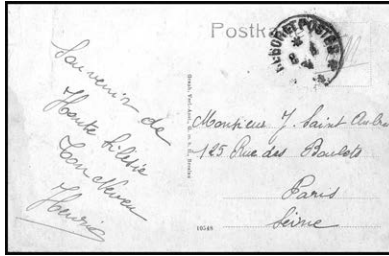 Postk
TRESOR ET POSTES
Souvenir de
Haute Silésie
Ton Neveu
Henri
Monsieur J. Saint Aubin
125 Rue des Boulets
Paris
Seine
10548